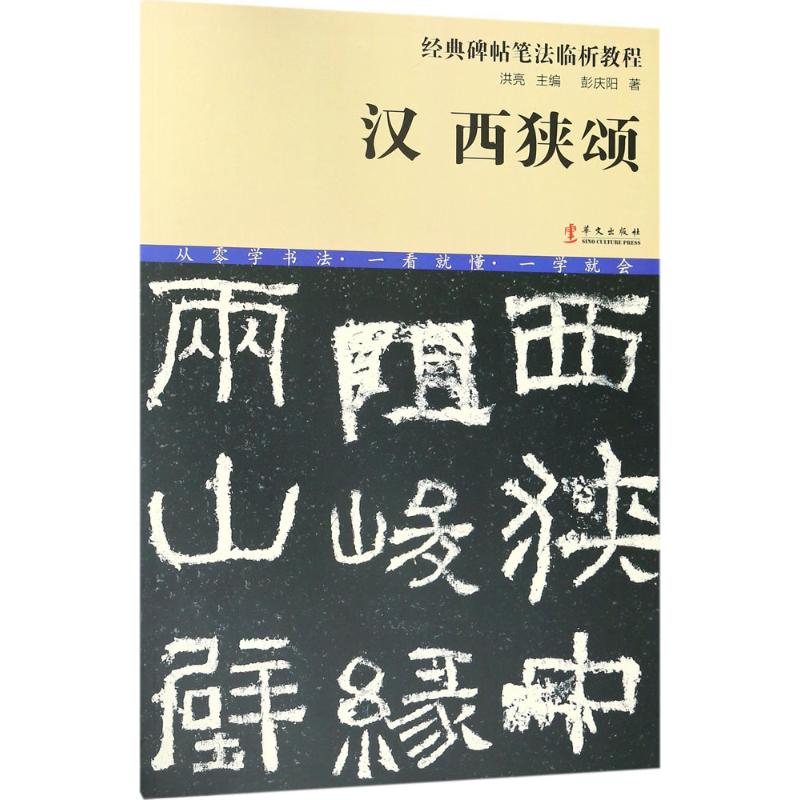 经典碑帖笔法临析教程
洪亮 主编 彭庆阳 著
汉 西狭颂
華文出版社
SINO CULTURE PRESS
从零学书法·一看就懂·一学就会
西狭中
阻峻緣
兩山壁